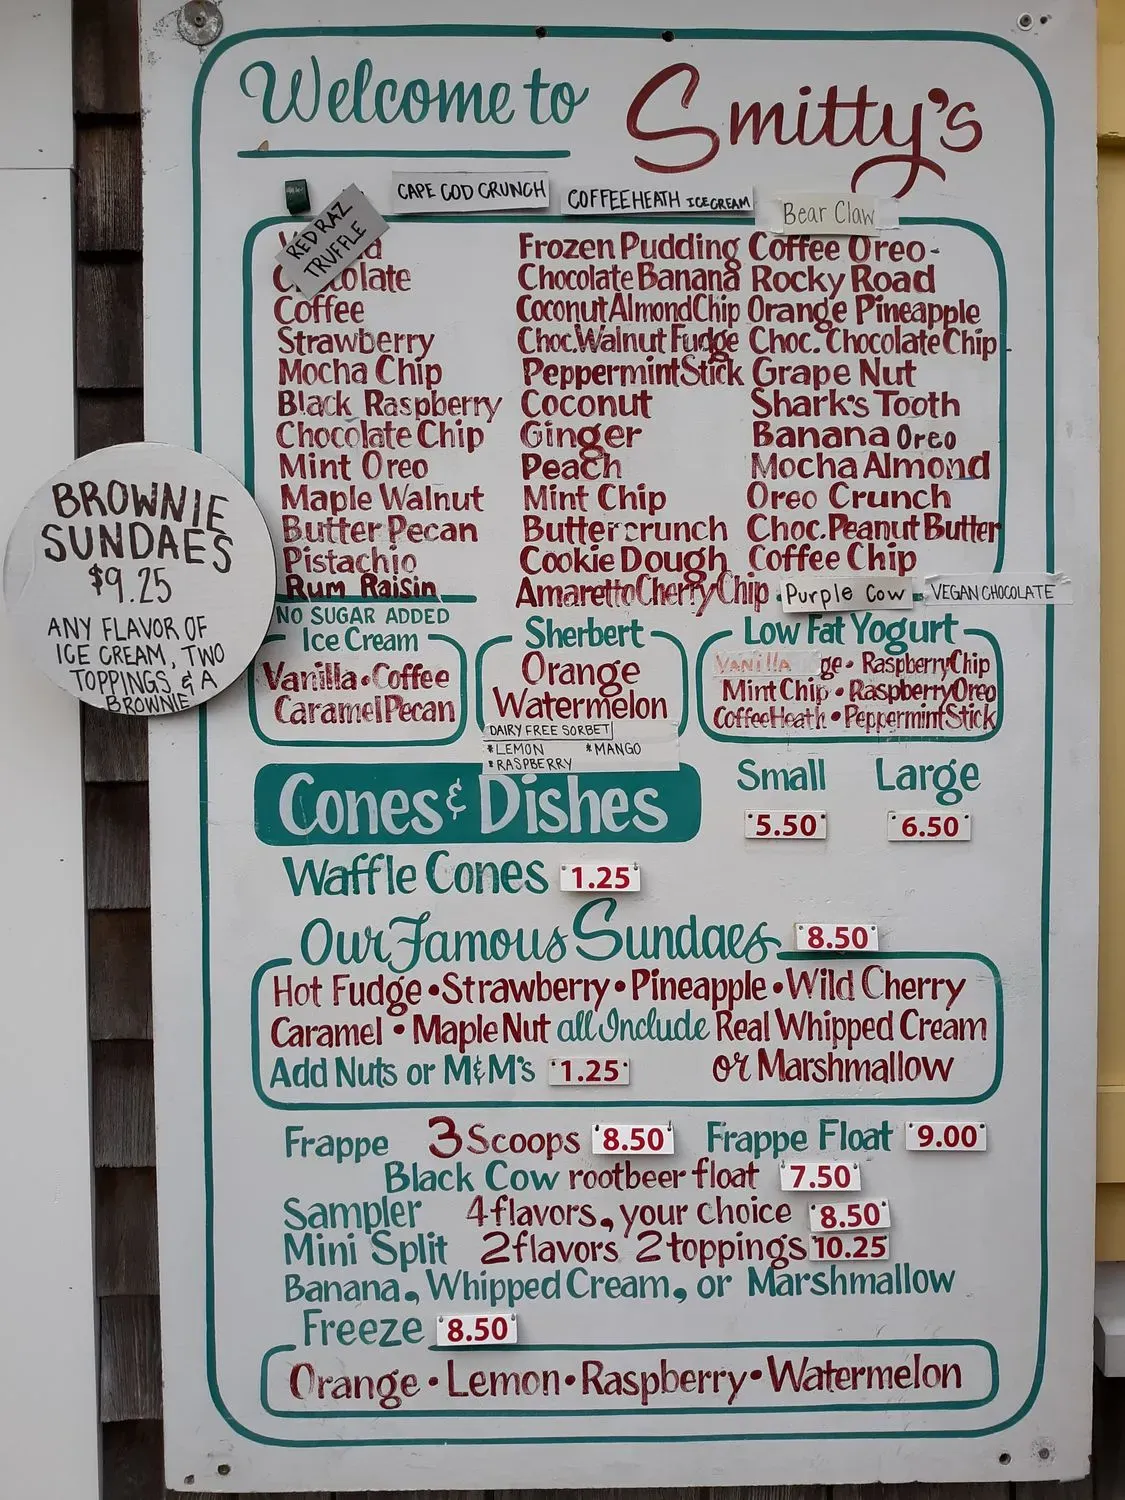 Welcome to Smitty's
RED RAZ
TRUFFLE
CAPE COD CRUNCH
COFFEE HEATH ICE CREAM
Bear Claw
Coffee
Strawberry
Mocha Chip
Black Raspberry
Chocolate Chip
Mint Oreo
Maple Walnut
Butter Pecan
Pistachio
Rum Raisin
Frozen Pudding
Chocolate Banana
Coconut Almond Chip
Choc. Walnut Fudge
Peppermint Stick
Coconut
Ginger
Peach
Mint Chip
Buttercrunch
Cookie Dough
Amaretto Cherry Chip
Coffee Oreo
Rocky Road
Orange Pineapple
Choc. Chocolate Chip
Grape Nut
Shark's Tooth
Banana Oreo
Mocha Almond
Oreo Crunch
Choc. Peanut Butter
Coffee Chip
Purple Cow
VEGAN CHOCOLATE
BROWNIE
SUNDAES
$9.25
ANY FLAVOR OF
ICE CREAM, TWO
TOPPINGS & A
BROWNIE
NO SUGAR ADDED
Ice Cream
Vanilla • Coffee
Caramel Pecan
Sherbert
Orange
Watermelon
DAIRY FREE SORBET
*LEMON *MANGO
*RASPBERRY
Low Fat Yogurt
Vanilla • Raspberry Chip
Mint Chip • Raspberry Oreo
Coffee Heath • Peppermint Stick
Cones & Dishes
Small Large
5.50 6.50
Waffle Cones 1.25
Our Famous Sundaes 8.50
Hot Fudge • Strawberry • Pineapple • Wild Cherry
Caramel • Maple Nut all Include Real Whipped Cream
Add Nuts or M&M's 1.25 or Marshmallow
Frappe 3 Scoops 8.50 Frappe Float 9.00
Black Cow rootbeer float 7.50
Sampler 4 flavors, your choice 8.50
Mini Split 2 flavors 2 toppings 10.25
Banana, Whipped Cream, or Marshmallow
Freeze 8.50
Orange • Lemon • Raspberry • Watermelon